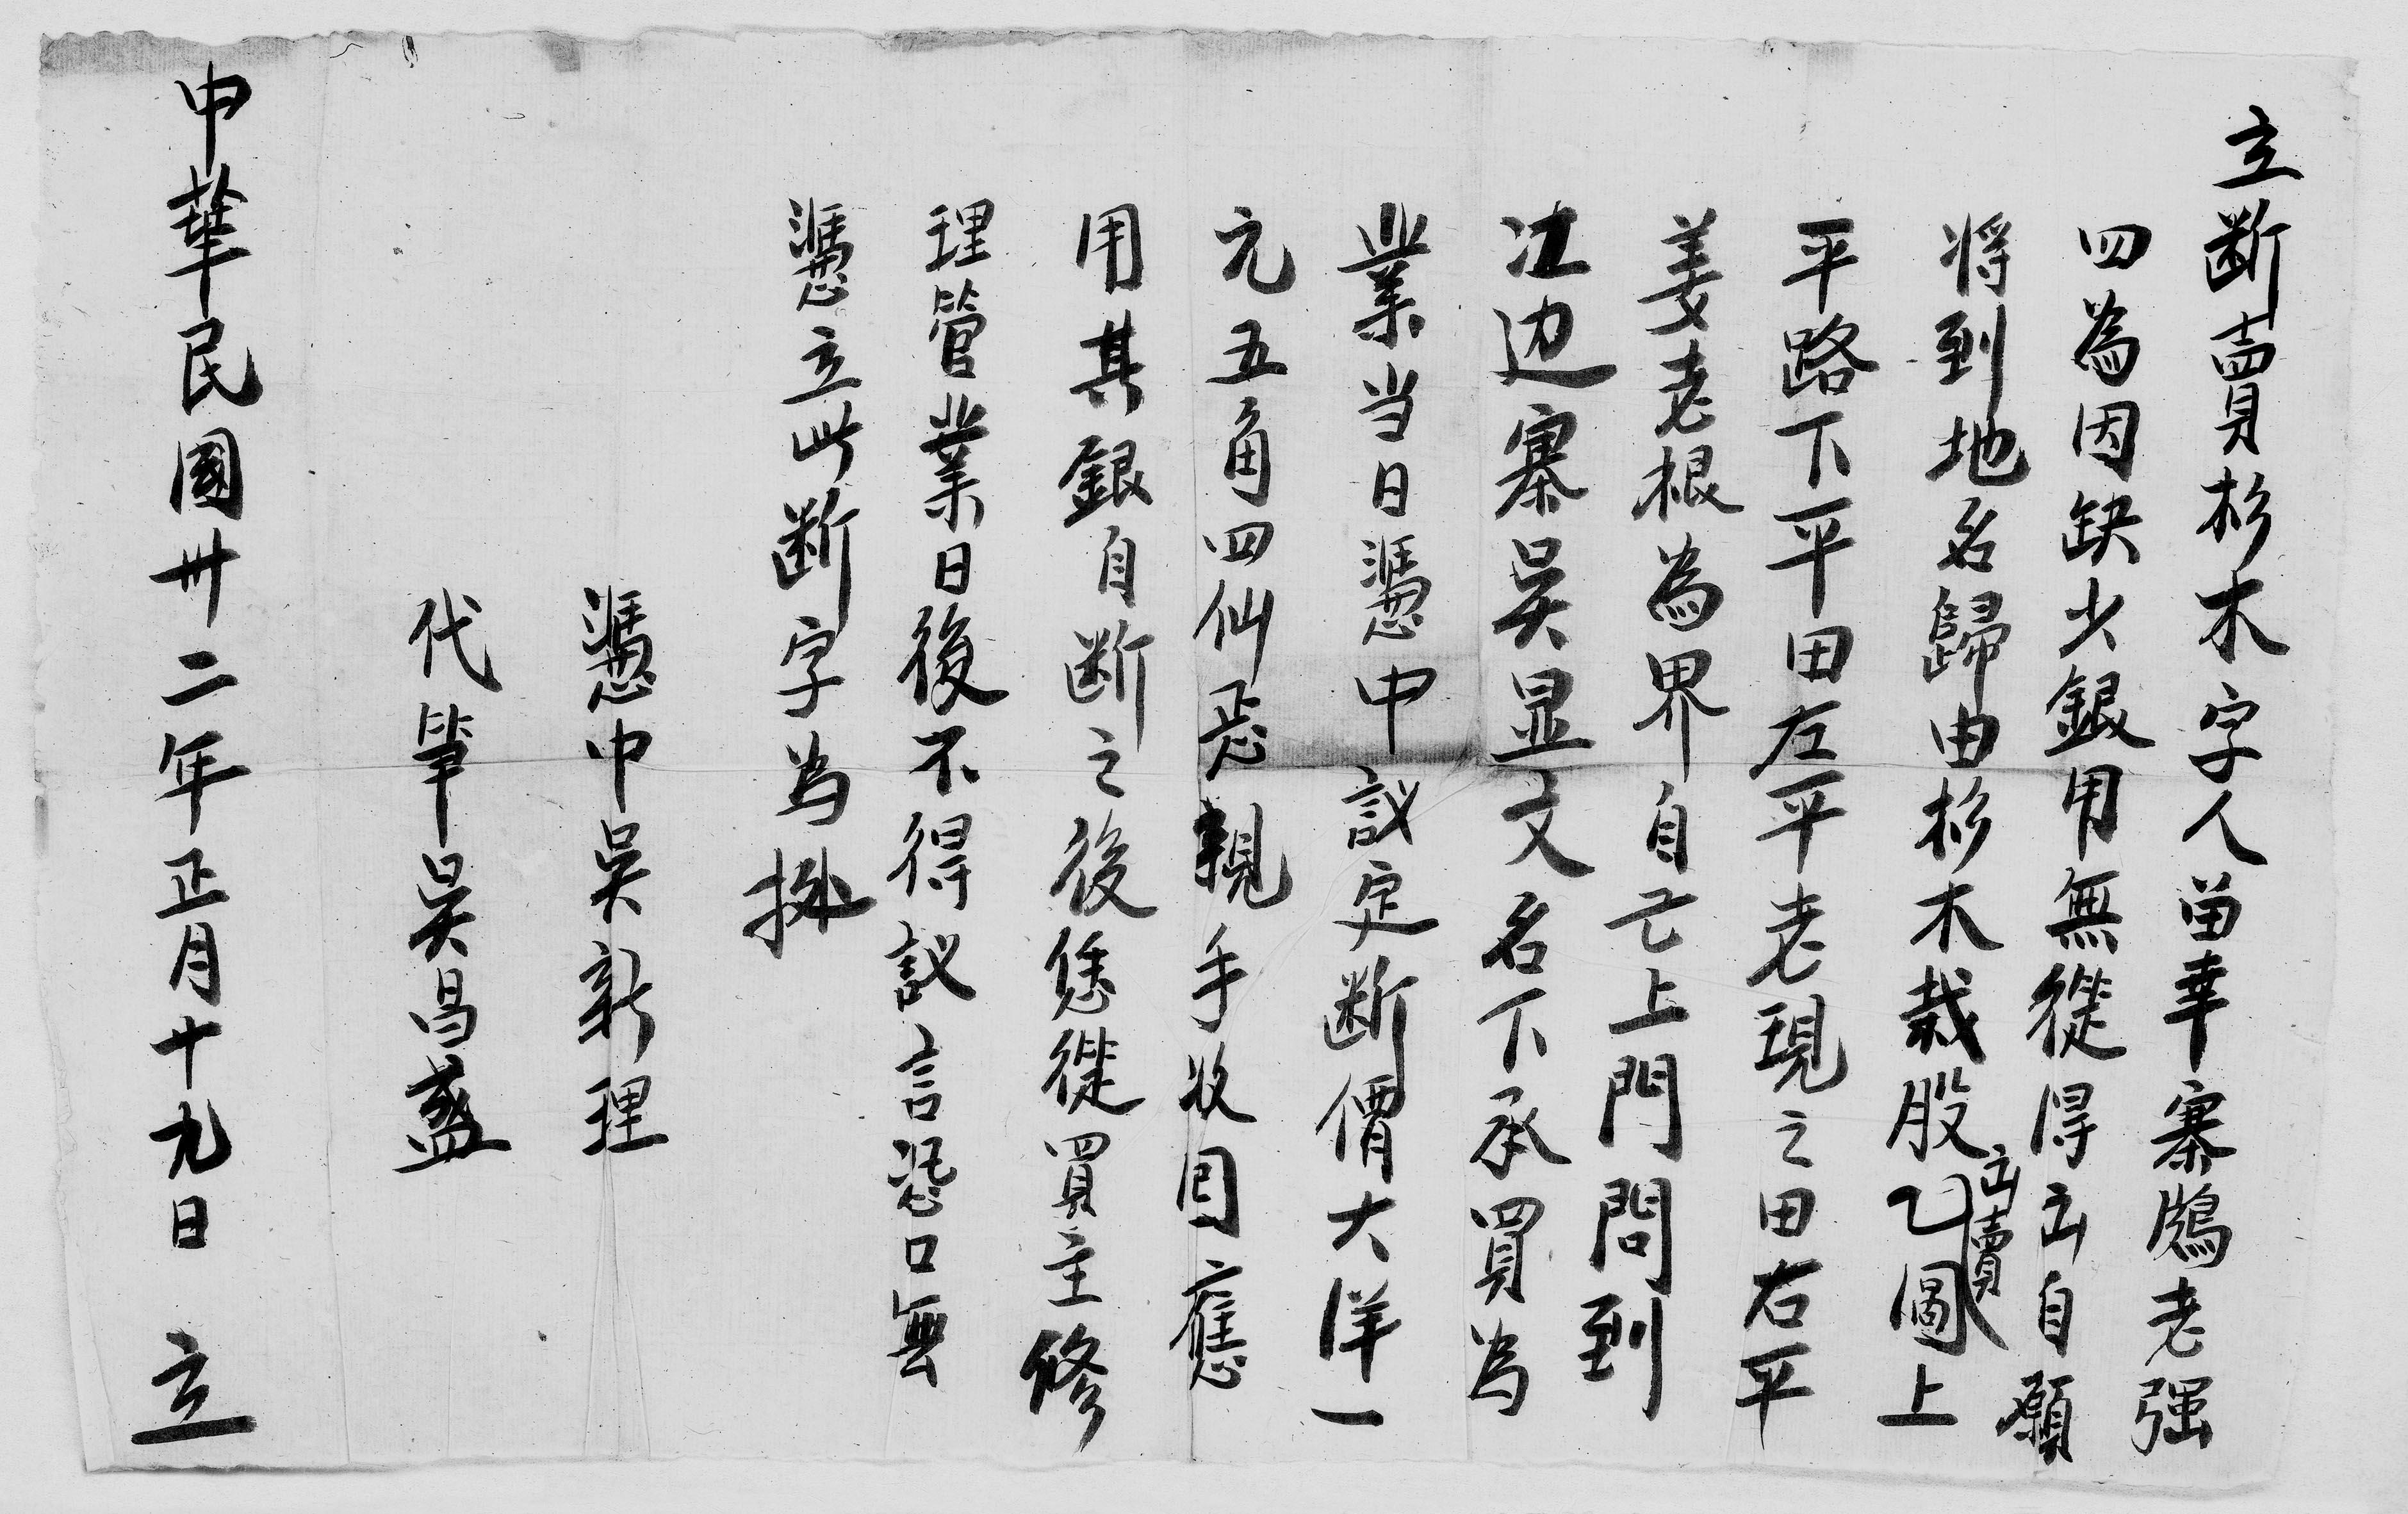 立断賣杉木字人苗举寨鴈老强
四為因缺少銀用無從得出自願
将到地名歸由杉木栽股乙團出賣上
平路下平田左平老現之田右平
姜老根為界自己上門問到
江边寨吴显文名下承買為
業当日憑中議定断價大洋一
元五角四仙恁親手收回應
用其銀自断之後恁從買主修
理管業日後不得議言恐口無
憑立此断字為據
憑中吴新理
代筆吴昌盛
中華民國卅二年正月十九日 立